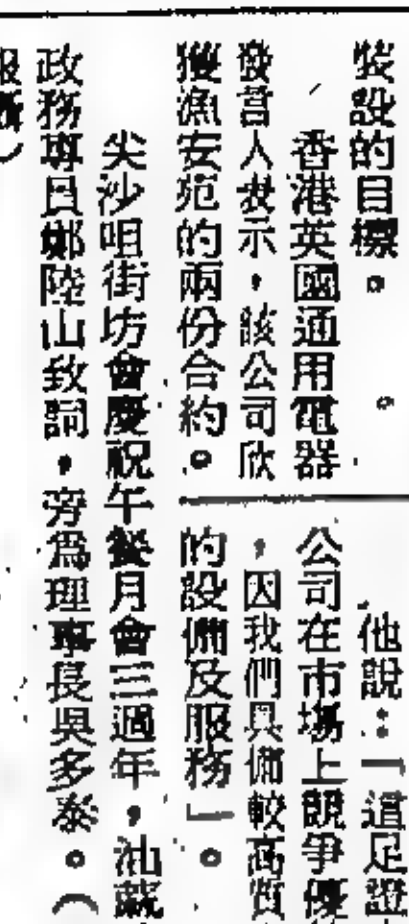 裝設的目標。
香港英國通用電器
發言人表示，該公司欣
獲漁安苑的兩份合約。
他說：「這足證
公司在市場上競爭優
，因我們具備較高質
的設備及服務」。
尖沙咀街坊會慶祝午餐月會三週年，油蔴
政務專員鄉陸山致詞，旁為理事長吳多泰。（
報